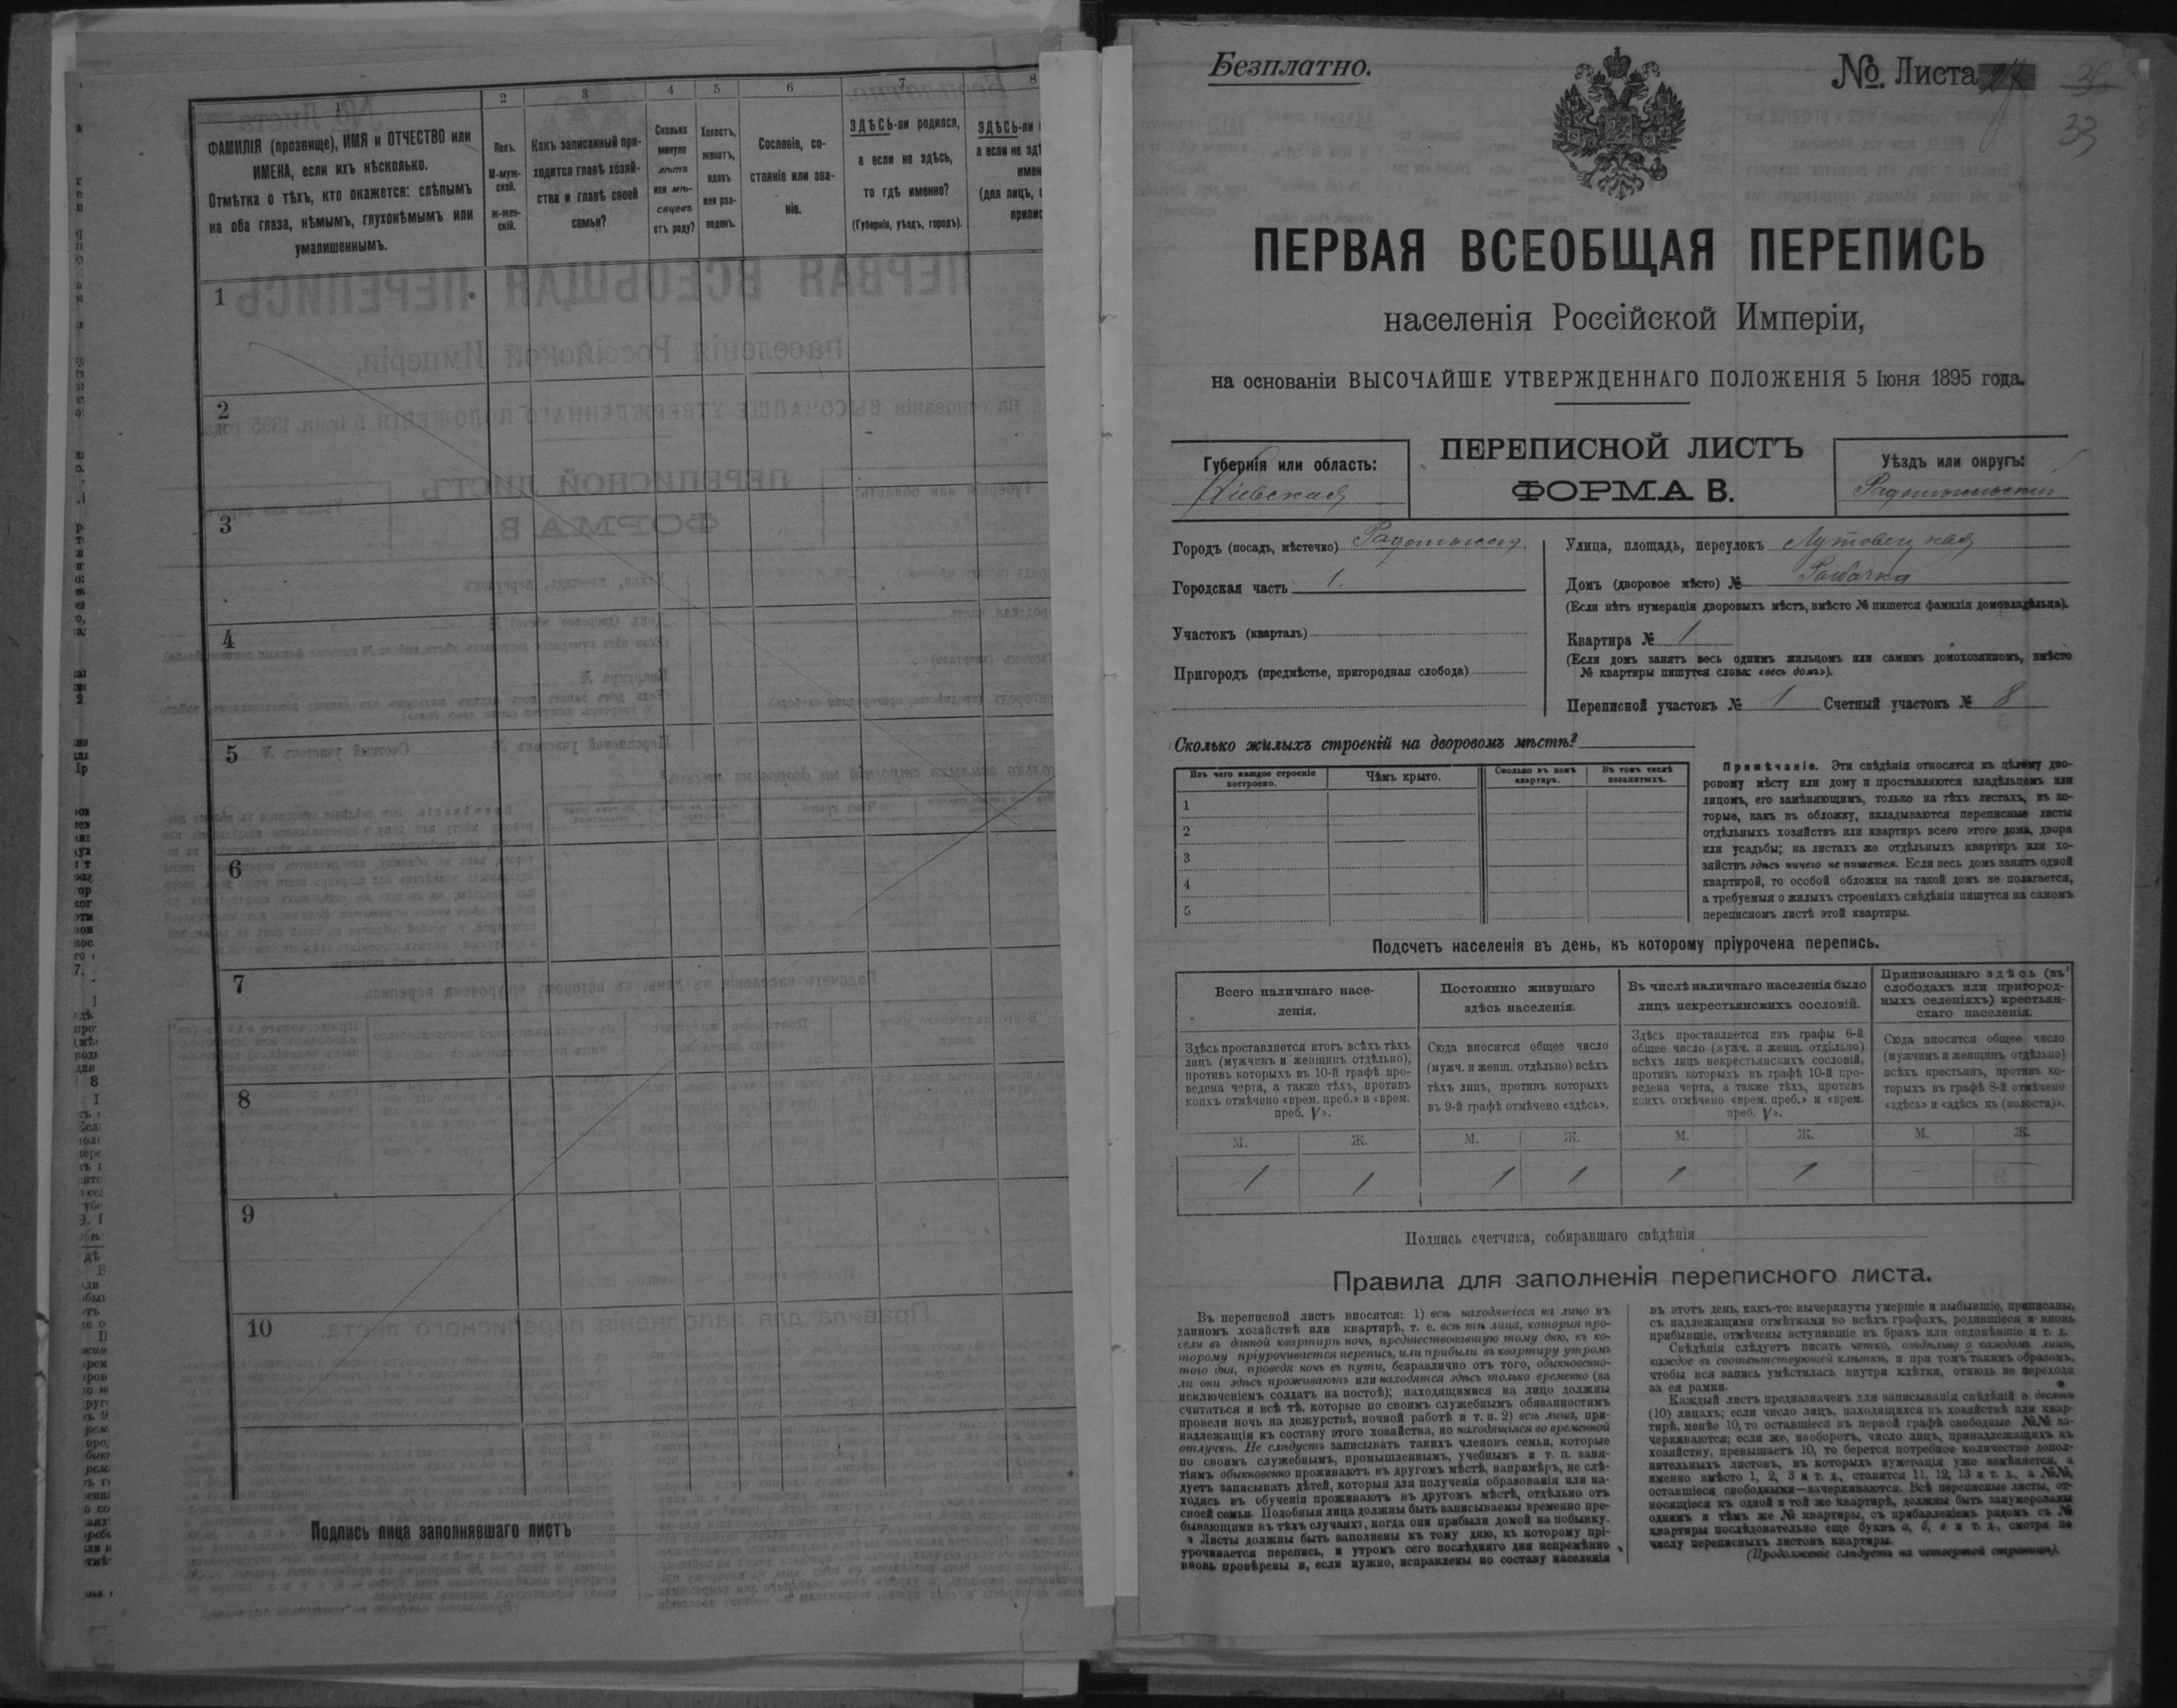 1
ФАМИЛІЯ (прозвище), ИМЯ и ОТЧЕСТВО или
ИМЕНА, если ихъ нѣсколько.
Отмѣтка о тѣхъ, кто окажется: слѣпымъ
на оба глаза, нѣмымъ, глухонѣмымъ или
умалишеннымъ.
2
Полъ.
М-муж-
ской.
Ж-жен-
скій.
3
Какъ записанный при-
ходится главѣ хозяй-
ства и главѣ своей
семьи?
4
Сколько
минуло
лѣтъ
или мѣ-
сяцевъ
отъ роду?
5
Холостъ,
женатъ,
вдовъ
или раз-
веденъ.
6
Сословіе, со-
стояніе или зва-
ніе.
7
ЗДѢСЬ-ли родился,
а если не здѣсь,
то гдѣ именно?
(Губернія, уѣздъ, городъ).
8
ЗДѢСЬ-ли
а если не здѣ
имен
(для лицъ,
припис
1
2
3
4
5
6
7
8
9
10
Подпись лица заполнявшаго листъ
Безплатно.
№ Листа
33
ПЕРВАЯ ВСЕОБЩАЯ ПЕРЕПИСЬ
населенія Россійской Имперіи,
на основаніи ВЫСОЧАЙШЕ УТВЕРЖДЕННАГО ПОЛОЖЕНІЯ 5 Іюня 1895 года.
Губернія или область:
Кіевская
ПЕРЕПИСНОЙ ЛИСТЪ
ФОРМА В.
Уѣздъ или округъ:
Радомысльскій
Городъ (посадъ, мѣстечко) Радомысль
Городская часть 1.
Участокъ (кварталъ)
Пригородъ (предмѣстье, пригородная слобода)
Улица, площадь, переулокъ
Домъ (дворовое мѣсто) №
(Если нѣтъ нумераціи дворовыхъ мѣстъ, вмѣсто № пишется фамилія домовладѣльца).
Квартира № 1
(Если домъ занятъ весь однимъ жильцомъ или самимъ домохозяиномъ, вмѣсто
№ квартиры пишутся слова: «весь домъ»).
Переписной участокъ № 1 Счетный участокъ № 8
Сколько жилыхъ строеній на дворовомъ мѣстѣ?
Изъ чего каждое строеніе
построено.
Чѣмъ крыто.
Сколько въ немъ
квартиръ.
Въ томъ числѣ
незанятыхъ.
1
2
3
4
5
Примѣчаніе. Эти свѣдѣнія относятся къ цѣлому дво-
ровому мѣсту или дому и проставляются владѣльцемъ или
лицомъ, его замѣняющимъ, только на тѣхъ листахъ, въ ко-
торые, какъ въ обложку, вкладываются переписные листы
отдѣльныхъ хозяйствъ или квартиръ всего этого дома, двора
или усадьбы; на листахъ же отдѣльныхъ квартиръ или хо-
зяйствъ здѣсь ничего не пишется. Если весь домъ занятъ одной
квартирой, то особой обложки на такой домъ не полагается,
а требуемыя о жилыхъ строеніяхъ свѣдѣнія пишутся на самомъ
переписномъ листѣ этой квартиры.
Подсчетъ населенія въ день, къ которому пріурочена перепись.
Всего наличнаго насе-
ленія.
Здѣсь проставляется итогъ всѣхъ тѣхъ
лицъ (мужчинъ и женщинъ отдѣльно),
противъ которыхъ въ 10-й графѣ про-
ведена черта, а также тѣхъ, противъ
коихъ отмѣчено «врем. преб.» и «врем.
преб. V».
Постоянно живущаго
здѣсь населенія.
Сюда вносится общее число
(мужч. и женщ. отдѣльно) всѣхъ
тѣхъ лицъ, противъ которыхъ
въ 9-й графѣ отмѣчено «здѣсь».
Въ числѣ наличнаго населенія было
лицъ некрестьянскихъ сословій.
Здѣсь проставляется изъ графы 6-й
общее число (мужч. и женщ. отдѣльно)
всѣхъ лицъ некрестьянскихъ сословій,
противъ которыхъ въ графѣ 10-й про-
ведена черта, а также тѣхъ, противъ
коихъ отмѣчено «врем. преб.» и «врем.
преб. V».
Приписаннаго здѣсь (въ
слободахъ или пригород-
ныхъ селеніяхъ) крестьян-
скаго населенія.
Сюда вносится общее число
(мужчинъ и женщинъ отдѣльно)
всѣхъ крестьянъ, противъ ко-
торыхъ въ графѣ 8-й отмѣчено
«здѣсь» и «здѣсь къ (волости)».
М. Ж. М. Ж. М. Ж. М. Ж.
1 1 1 1 1 1
Подпись счетчика, собиравшаго свѣдѣнія
Правила для заполненія переписного листа.
Въ переписной листъ вносятся: 1) всѣ находящіеся на лицо въ
данномъ хозяйствѣ или квартирѣ, т. е. всѣ тѣ лица, которыя про-
вели въ данной квартирѣ ночь, предшествовавшую тому дню, къ ко-
торому пріурочивается перепись, или прибыли въ квартиру утромъ
того дня, проведя ночь въ пути, безразлично отъ того, обыкновенно-
ли они здѣсь проживаютъ или находятся здѣсь только временно (за
исключеніемъ солдатъ на постоѣ); находящимися на лицо должны
считаться и всѣ тѣ, которые по своимъ служебнымъ обязанностямъ
провели ночь на дежурствѣ, ночной работѣ и т. п. 2) всѣ лица, при-
надлежащія къ составу этого хозяйства, но находящіяся во временной
отлучкѣ. Не слѣдуетъ записывать такихъ членовъ семьи, которые
по своимъ служебнымъ, промышленнымъ, учебнымъ и т. п. заня-
тіямъ обыкновенно проживаютъ въ другомъ мѣстѣ, напримѣръ, не слѣ-
дуетъ записывать дѣтей, которыя для полученія образованія или на-
ходясь въ обученіи проживаютъ въ другомъ мѣстѣ, отдѣльно отъ
своей семьи. Подобныя лица должны быть записываемы временно пре-
бывающими въ тѣхъ случаяхъ, когда они прибыли домой на побывку.
Листы должны быть заполнены къ тому дню, къ которому прі-
урочивается перепись, и утромъ сего послѣдняго дня непремѣнно
вновь провѣрены и, если нужно, исправлены по составу населенія
въ этотъ день, какъ-то: вычеркнуты умершіе и выбывшіе, приписаны,
съ надлежащими отмѣтками во всѣхъ графахъ, родившіеся и вновь
прибывшіе, отмѣчены вступившіе въ бракъ или овдовѣвшіе и т. д.
Свѣдѣнія слѣдуетъ писать четко, отдѣльно о каждомъ лицѣ,
каждое въ соотвѣтствующей клѣткѣ, и при томъ такимъ образомъ,
чтобы вся запись умѣстилась внутри клѣтки, отнюдь не переходя
за ея рамки.
Каждый листъ предназначенъ для записыванія свѣдѣній о десяти
(10) лицахъ; если число лицъ, находящихся въ хозяйствѣ или квар-
тирѣ, менѣе 10, то оставшіеся въ первой графѣ свободные №№ за-
черкиваются; если же, наоборотъ, число лицъ, принадлежащихъ къ
хозяйству, превышаетъ 10, то берется потребное количество допол-
нительныхъ листовъ, въ которыхъ нумерація уже измѣняется, а
именно вмѣсто 1, 2, 3 и т. д., ставится 11, 12, 13 и т. д., а №№,
оставшіеся свободными—зачеркиваются. Всѣ переписные листы, от-
носящіеся къ одной и той же квартирѣ, должны быть занумерованы
однимъ и тѣмъ же № квартиры, съ прибавленіемъ рядомъ съ №
квартиры послѣдовательно еще буквъ а, б, в и т. д., смотря по
числу переписныхъ листовъ квартиры.
(Продолженіе слѣдуетъ на четвертой страницѣ).